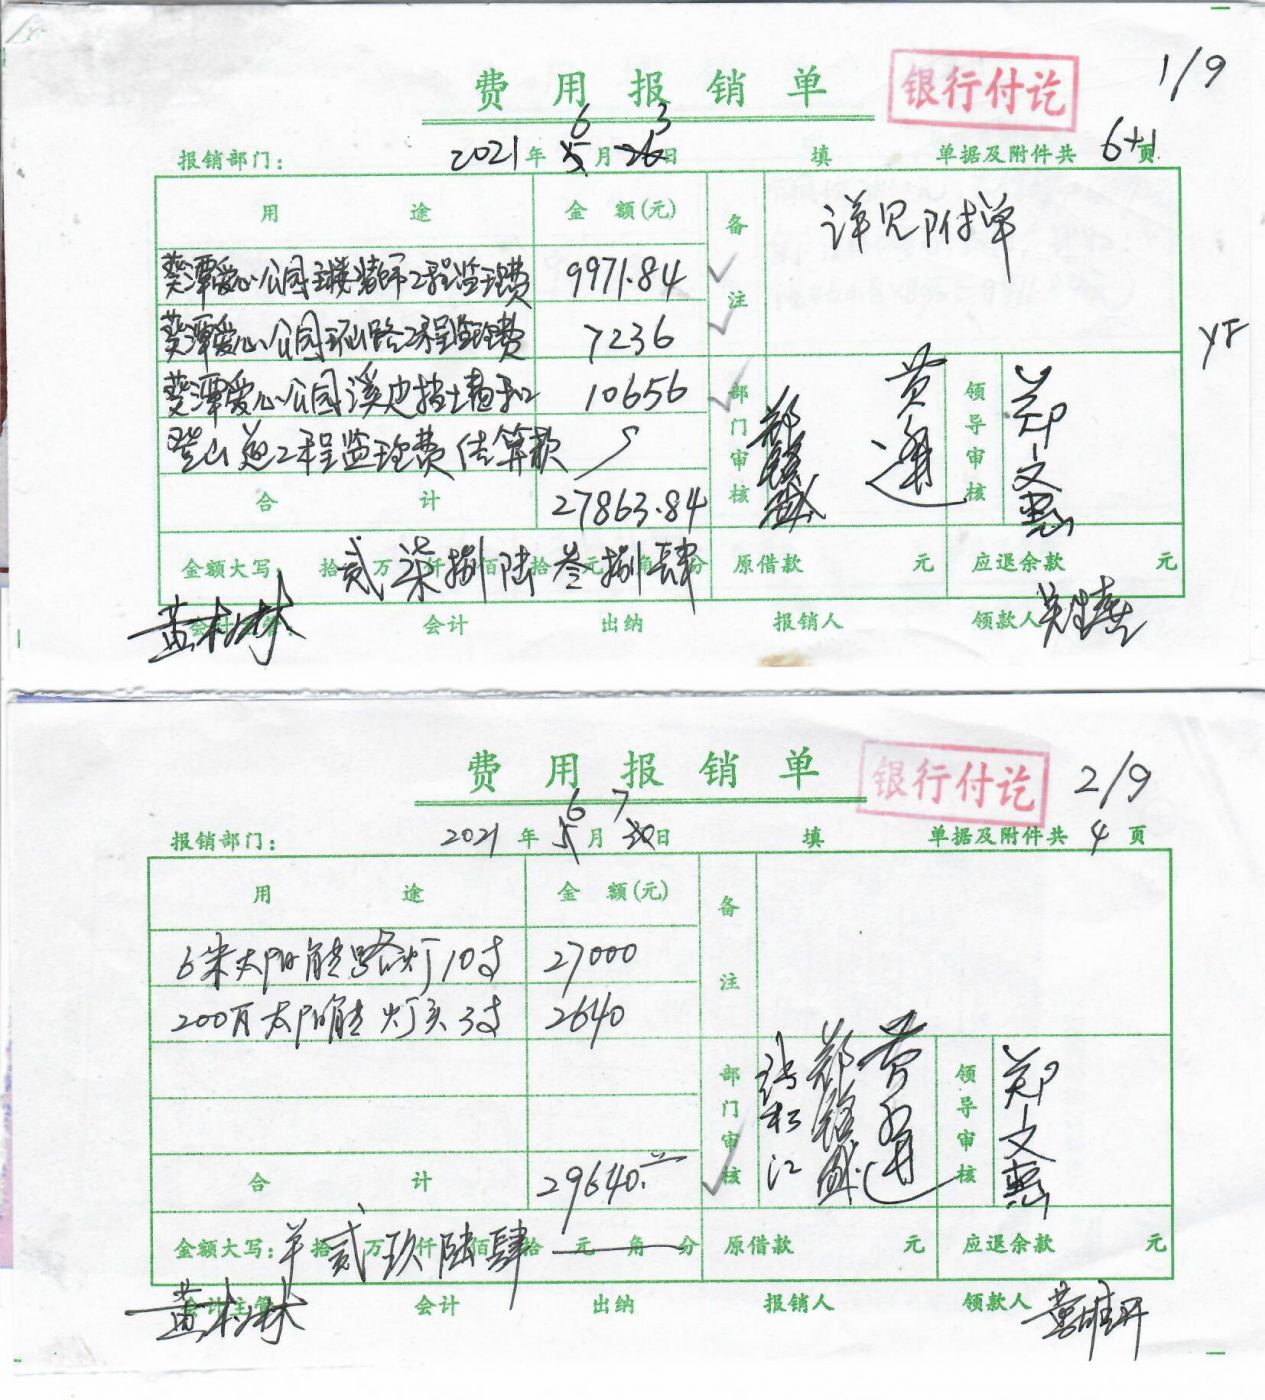 费用报销单
银行付讫
1/9
6 3
报销部门: 2021年5月26日 填 单据及附件共 6+1 页
用途 金额(元) 备注
详见附单
葵潭爱心公园主楼装饰工程监理费 9971.84
葵潭爱心公园环山路工程监理费 7236
YF
葵潭爱心公园溪边挡土墙和 10656
登山道工程监理费结算款
部门审核 黄通 领导审核 郑文惠
合计 27863.84
金额大写: 拾贰万柒仟捌佰陆拾叁元捌角肆分 原借款 元 应退余款 元
会计主管: 会计 出纳 报销人 领款人
费用报销单
银行付讫
2/9
6 7
报销部门: 2021年5月30日 填 单据及附件共 4 页
用途 金额(元) 备注
6米太阳能路灯10支 27000
200瓦太阳能灯头3支 2640
部门审核 领导审核 郑文惠
合计 29640.
金额大写: 拾贰万玖仟陆佰肆拾元角分 原借款 元 应退余款 元
会计主管 会计 出纳 报销人 领款人